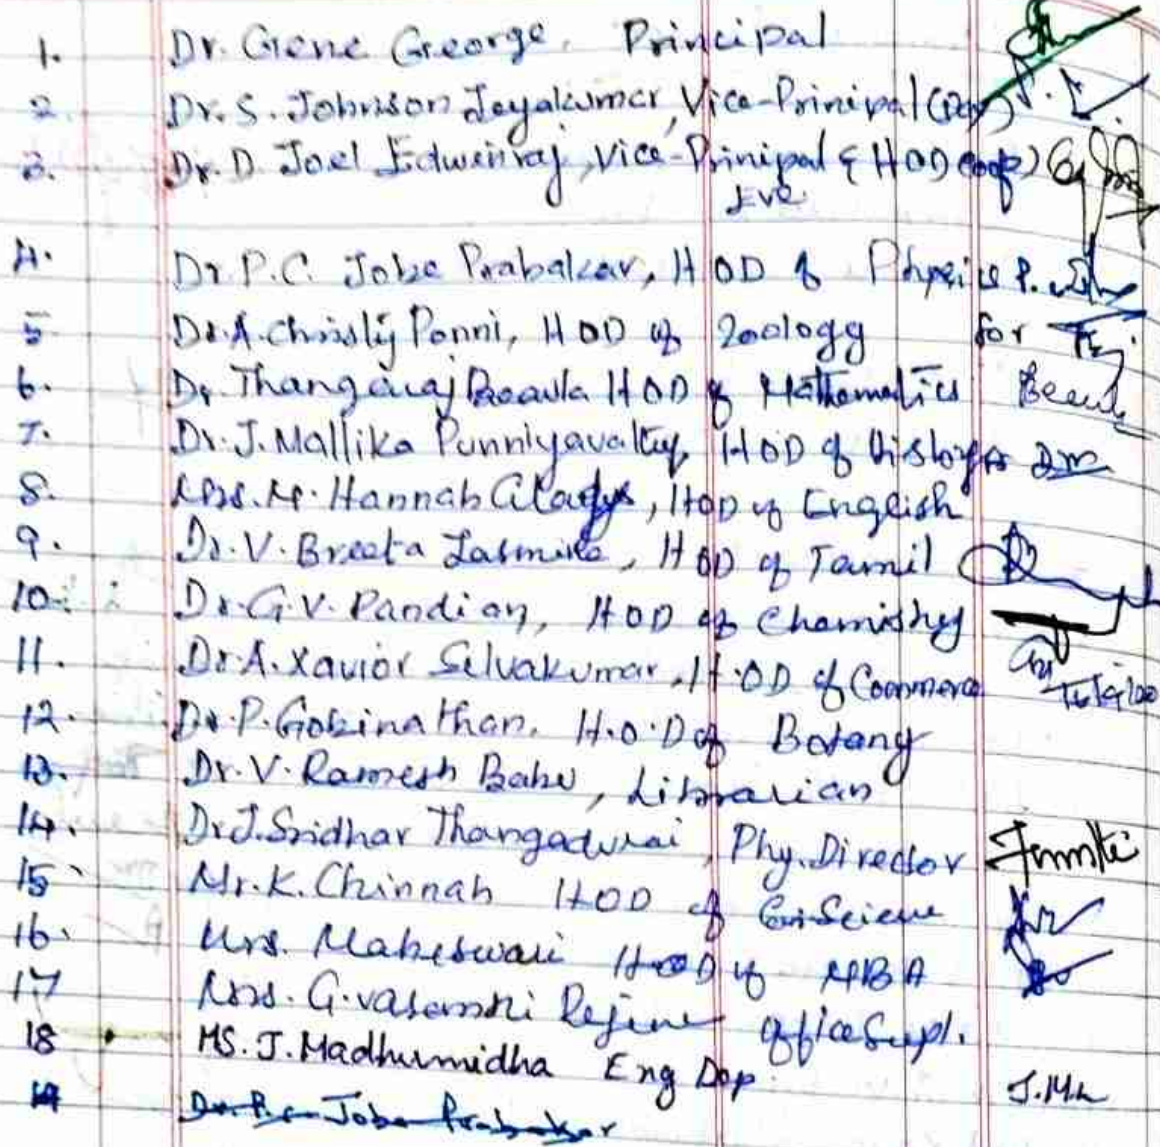 1. Dr. Gene George, Principal
2. Dr. S. Johnson Jeyakumar, Vice-Prinipal (Day)
3. Dr. D. Joel Edwinraj, Vice-Prinipal & HOD
Eve
4. Dr. P.C. Jobe Prabakar, HOD of Physics P.
5 Dr. A. Christy Ponni, HOD of Zoology for
6. Dr. Thangaraj Beaula HOD of Mathematics Beaula
7. Dr. J. Mallika Punniyavathy, HOD of History
8. Mrs. M. Hannah Gladys, HOD of English
9. Dr. V. Breeta Jasmine, HOD of Tamil
10 Dr. G.V. Pandian, HOD of Chemistry
11. Dr. A. Xavior Selvakumar, H.OD of Commerce
12. Dr. P. Gobinathan, H.O.D of Botany
13. Dr. V. Ramesh Babu, Librarian
14. Dr. J. Sridhar Thangadurai, Phy. Director
15 Mr. K. Chinnah HOD of Com.Science
16. Mrs. Maheswari HOD of MBA
17 Mrs. G. Vasanthi Regine Office Supt.
18 MS. J. Madhumidha Eng Dep. J.M
19 Dr. P.C. Jobe Prabakar